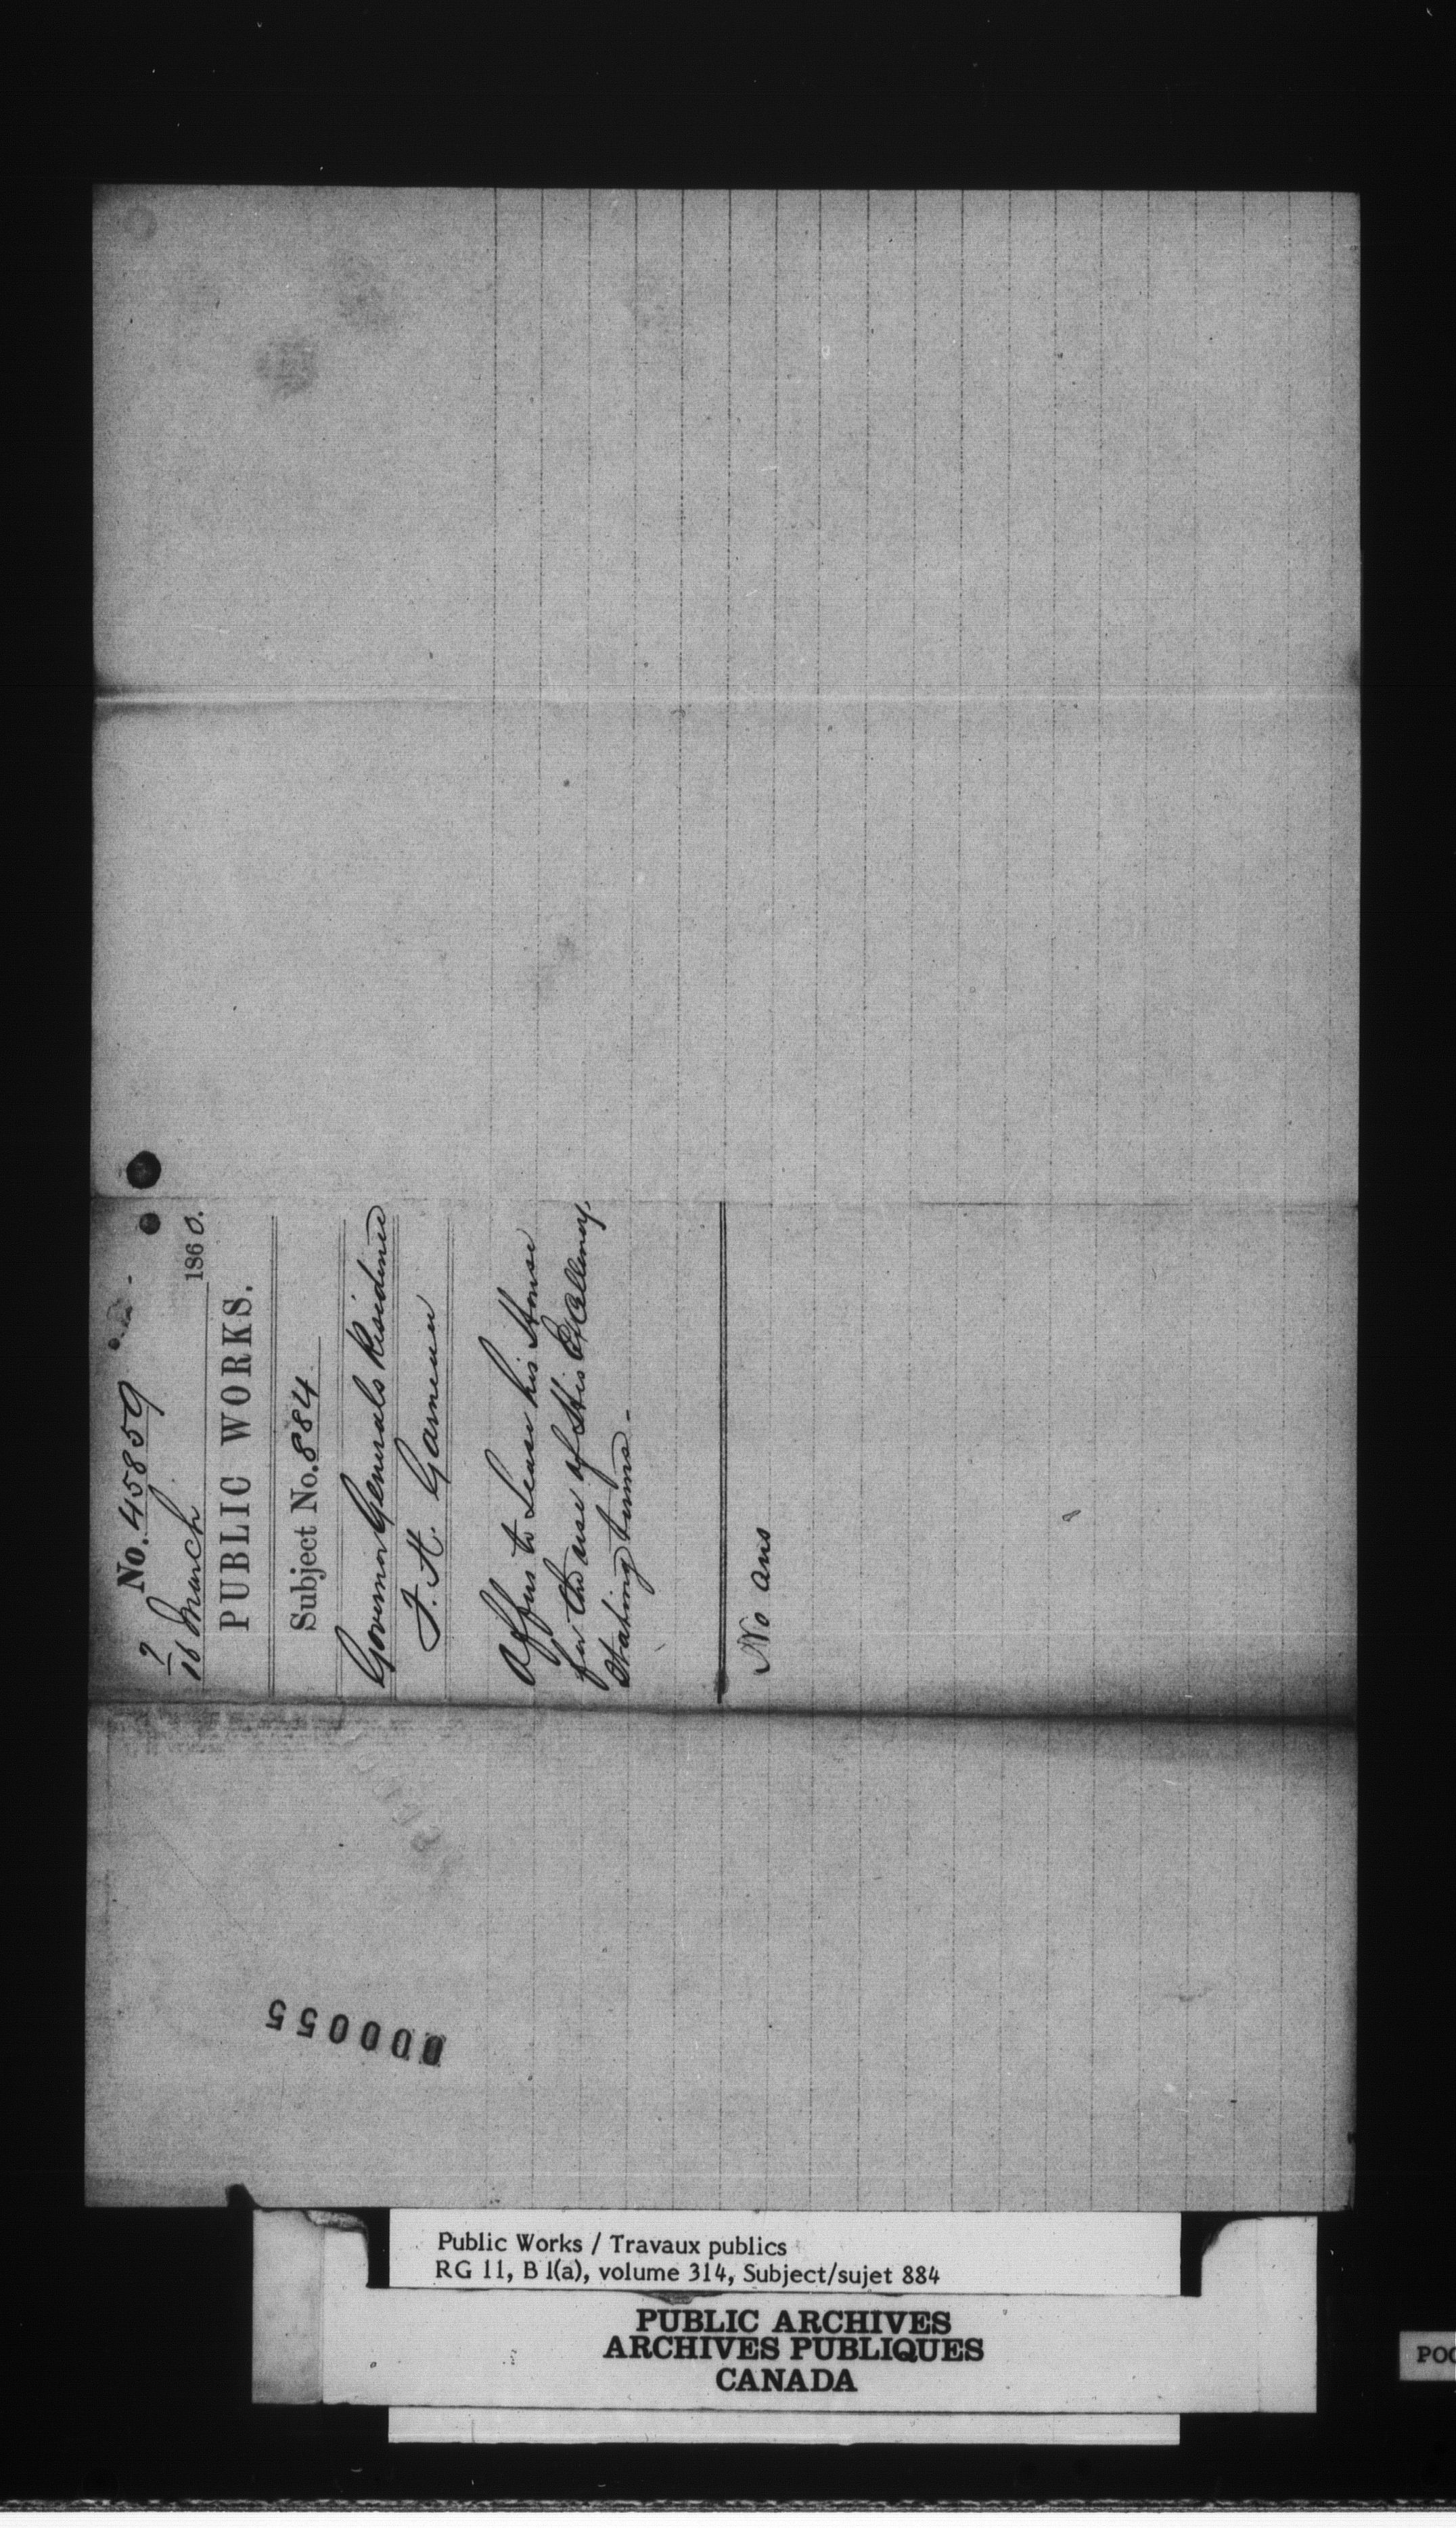 No. 45859
7/16 March 1860.
PUBLIC WORKS.
Subject No. 884
Governor Generals Residence
F. H.
Offers to Lease his House
for the use of His Excellency
Stating terms.-
No ans
000055
Public Works / Travaux publics
RG 11, B 1(a), volume 314, Subject/sujet 884
PUBLIC ARCHIVES
ARCHIVES PUBLIQUES
CANADA